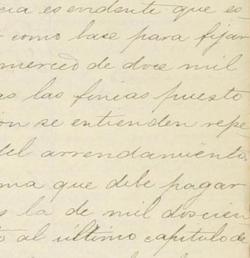 cia es evidente que es
como base para fijar
merced de doce mil
as las fincas puesto
on se entienden repe
del arrendamiento,
ma que debe pagar
s la de mil doscien
o al último capítulo de